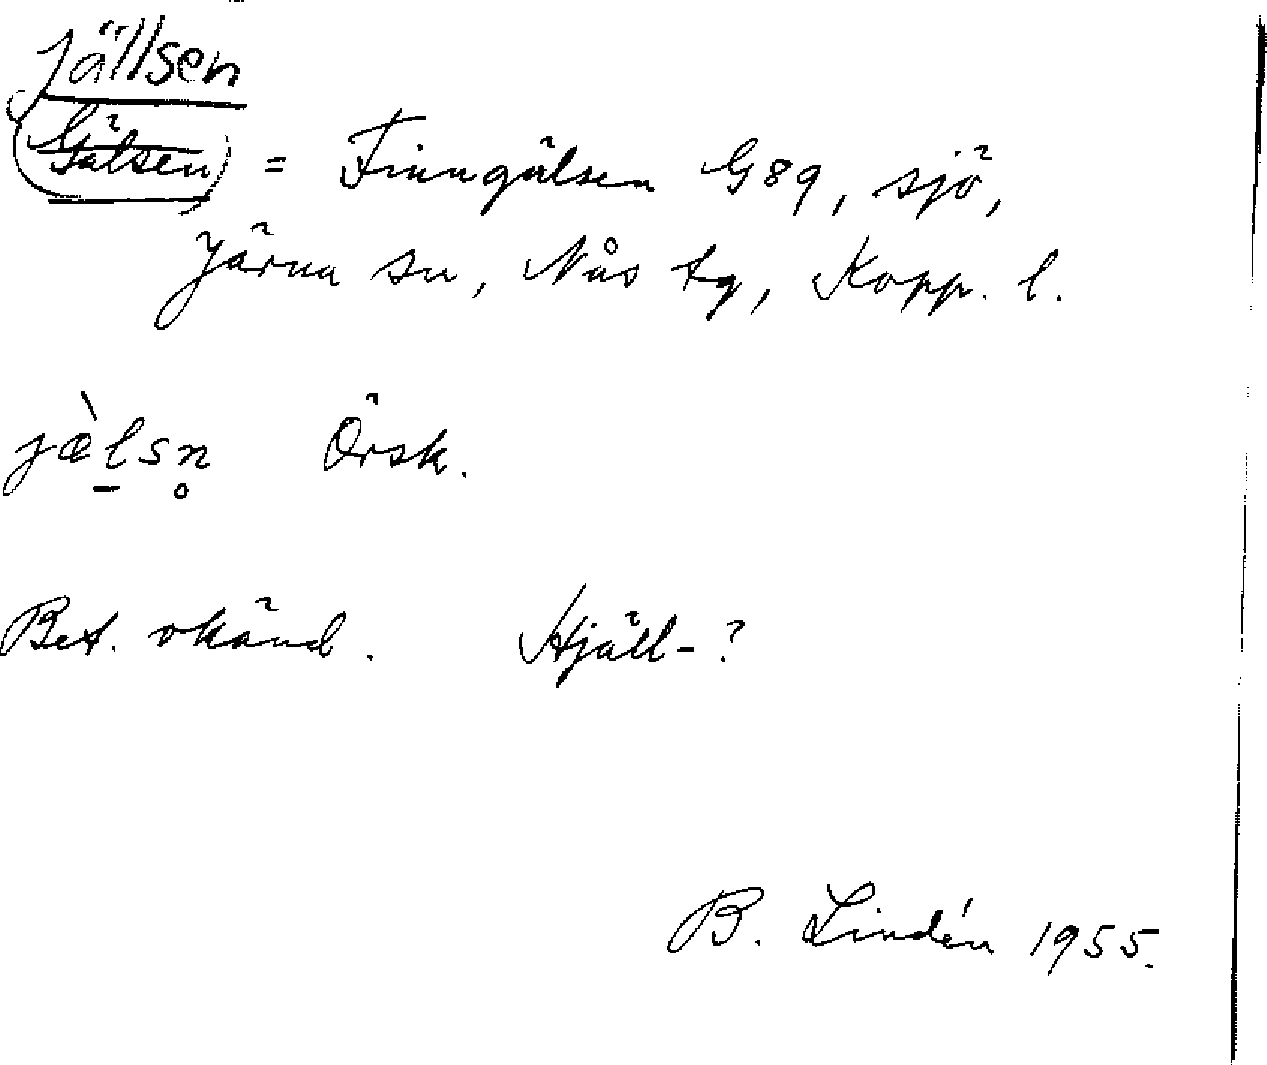 Jällsen
(Gälsen) = Finngälsen G89, sjö,
Järna sn, Nås tg, Kopp. l.
jæ̀l̠sn̥ Örsk.
Bet. okänd. Hjäll-?
B. Lindén 1955.